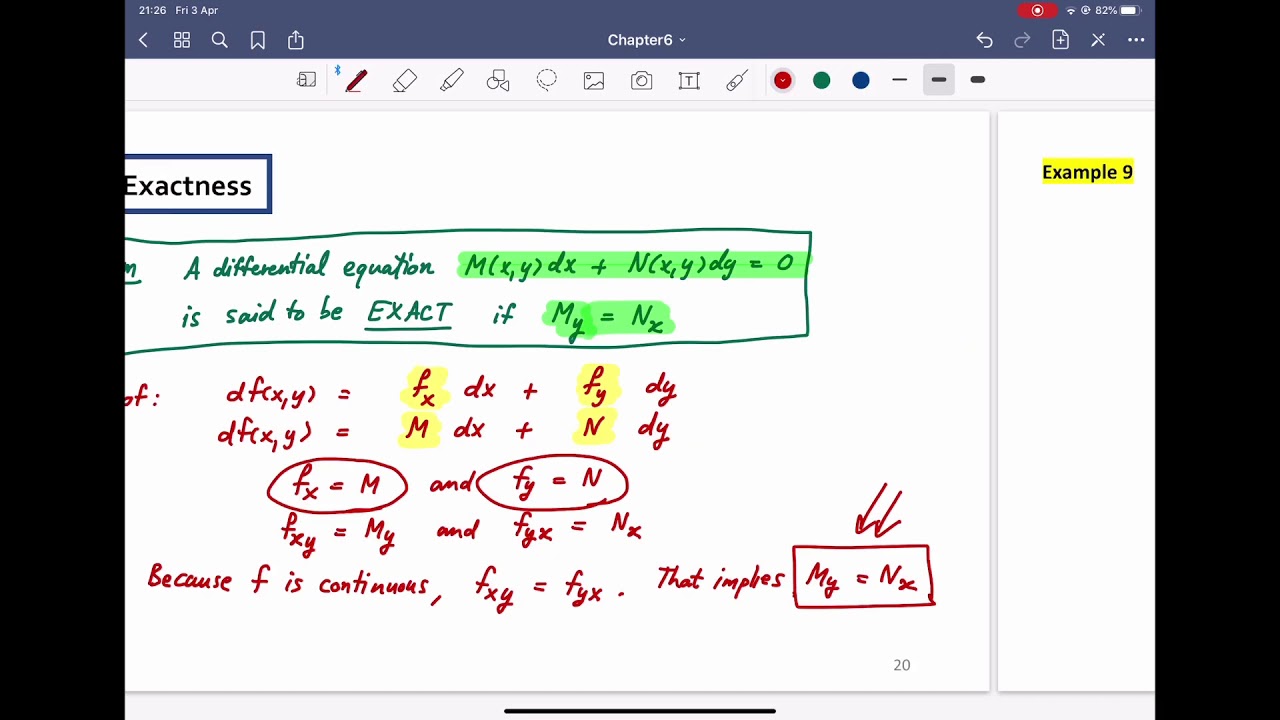 21:26 Fri 3 Apr 82%
Chapter6
T
Exactness
Example 9
A differential equation M(x,y)dx + N(x,y)dy = 0
is said to be EXACT if My = Nx
of: df(x,y) = fx dx + fy dy
df(x,y) = M dx + N dy
fx = M and fy = N
fxy = My and fyx = Nx
Because f is continuous, fxy = fyx. That implies My = Nx
20